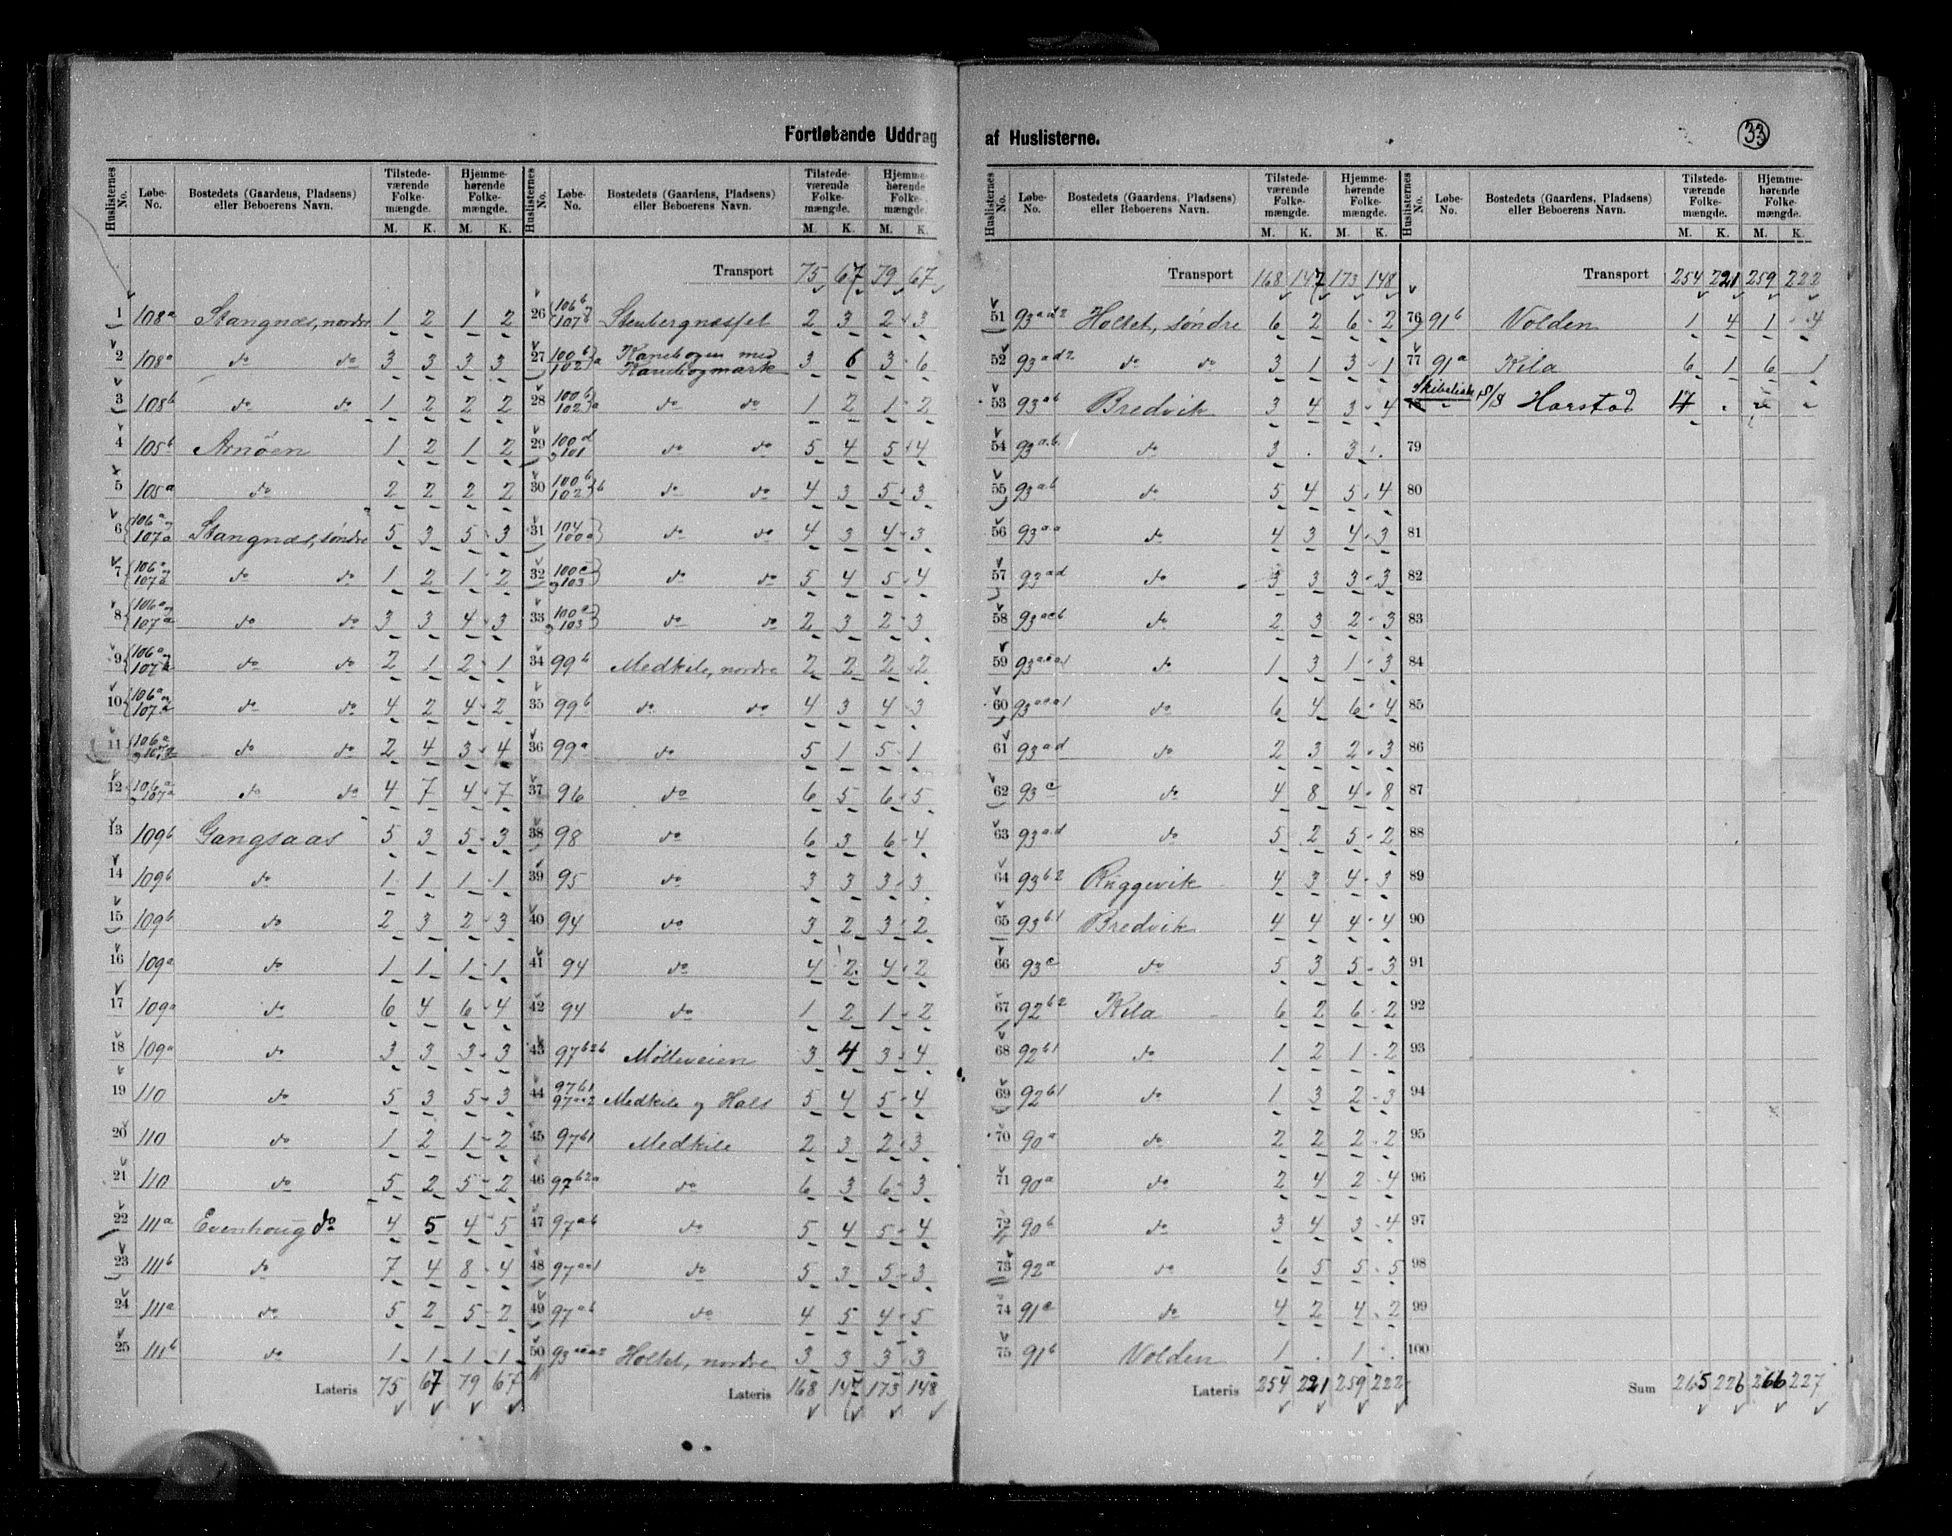 Fortløbende Uddrag af Huslisterne.
33
Huslisternes No. Løbe-No. Bostedets (Gaardens, Pladsens) eller Beboerens Navn. Tilstedeværende Folkemængde. M. K. Hjemmehørende Folkemængde. M. K.
1 108a Stangnæs, nordre 1 2 1 2
2 108a do do 3 3 3 3
3 108b do do 1 2 2 2
4 105b Arnøen 1 2 1 2
5 105a do 2 2 2 2
6 106a og 107a Stangnæs, søndre 5 3 5 3
7 106a og 107a do do 1 2 1 2
8 106a og 107a do do 3 3 4 3
9 106a og 107a do do 2 1 2 1
10 106a og 107a do do 4 2 4 2
11 106a og 107a do do 2 4 3 4
12 106a og 107a do do 4 7 4 7
13 109b Gangsaas 5 3 5 3
14 109b do 1 1 1 1
15 109b do 2 3 2 3
16 109a do 1 1 1 1
17 109a do 6 4 6 4
18 109a do 3 3 3 3
19 110 do 5 3 5 3
20 110 do 1 2 1 2
21 110 do 5 2 5 2
22 111a Evenhoug do 4 5 4 5
23 111b do 7 4 8 4
24 111a do 5 2 5 2
25 111b do 1 1 1 1
Lateris 75 67 79 67
Huslisternes No. Løbe-No. Bostedets (Gaardens, Pladsens) eller Beboerens Navn. Tilstedeværende Folkemængde. M. K. Hjemmehørende Folkemængde M. K.
Transport 75 67 79 67
26 106b og 107b Stenbergnæsset 2 3 2 3
27 100b 102a Kanebogen med Kanebogmark 3 6 3 6
28 100b 102a do do 1 2 1 2
29 100d og 101 do do 5 4 5 4
30 100b 102b do do 4 3 5 3
31 104 100a do do 4 3 4 3
32 100c og 103 do do 5 4 5 4
33 100a og 103 do do 2 3 2 3
34 99b Medkile, nordre 2 2 2 2
35 99b do do 4 3 4 3
36 99a do 5 1 5 1
37 96 do 6 5 6 5
38 98 do 6 3 6 4
39 95 do 3 3 3 3
40 94 do 3 2 3 2
41 94 do 4 2 4 2
42 94 do 1 2 1 2
43 97b2b Mølleveien 3 4 3 4
44 97b1 97aa2 Medkile og Hals 5 4 5 4
45 97b1 Medkile 2 3 2 3
46 97b2a do 6 3 6 3
47 97ab do 5 4 5 4
48 97aa1 do 5 3 5 3
49 97ab do 4 5 4 5
50 93aaa2 Holtet, nordre 3 3 3 3
Lateris 168 147 173 148
Huslisternes No. Løbe-No. Bostedets (Gaardens, Pladsens) eller Beboerens Navn. Tilstedeværende Folkemængde. M. K. Hjemmehørende Folkemængde. M. K.
Transport 168 147 173 148
51 93ad2 Holtet, søndre 6 2 6 2
52 93ad2 do do 3 1 3 1
53 93ab Bredvik 3 4 3 4
54 93ab1 do 3 . 3 .
55 93ab do 5 4 5 4
56 93aa do 4 3 4 3
57 93ad do 3 3 3 3
58 93aab do 2 3 2 3
59 93aaa1 do 1 3 1 3
60 93aaa1 do 6 4 6 4
61 93ad do 2 3 2 3
62 93c do 4 8 4 8
63 93ad do 5 2 5 2
64 93b2 Ruggevik 4 3 4 3
65 93b1 Bredvik 4 4 4 4
66 93c do 5 3 5 3
67 92b2 Kila 6 2 6 2
68 92b1 do 1 2 1 2
69 92b1 do 1 3 2 3
70 90a do 2 2 2 2
71 90a do 2 4 2 4
72 90b do 3 4 3 4
73 92a do 6 5 5 5
74 91a do 4 2 4 2
75 91b Volden 1 . 1 .
Lateris 254 221 259 222
Huslisternes No. Løbe-No. Bostedets (Gaardens, Pladsens) eller Beboerens Navn. Tilstedeværende Folkemængde. M. K. Hjemmehørende Folkemængde. M. K.
Transport 254 221 259 222
76 91b Volden 1 4 1 4
77 91a Kila 6 1 6 1
78 Skibsliste S/S Harstad 4 . " "
79
80
81
82
83
84
85
86
87
88
89
90
91
92
93
94
95
96
97
98
99
100
Sum 265 226 266 227